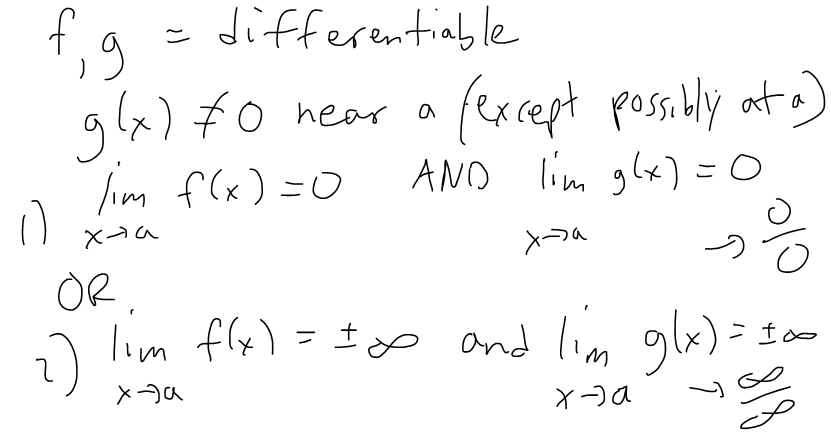 f, g = differentiable
g(x) ≠ 0 near a (except possibly at a)
1) lim x→a f(x) = 0 AND lim x→a g(x) = 0 → 0/0
OR
2) lim x→a f(x) = ± ∞ and lim x→a g(x) = ± ∞ → ∞/∞